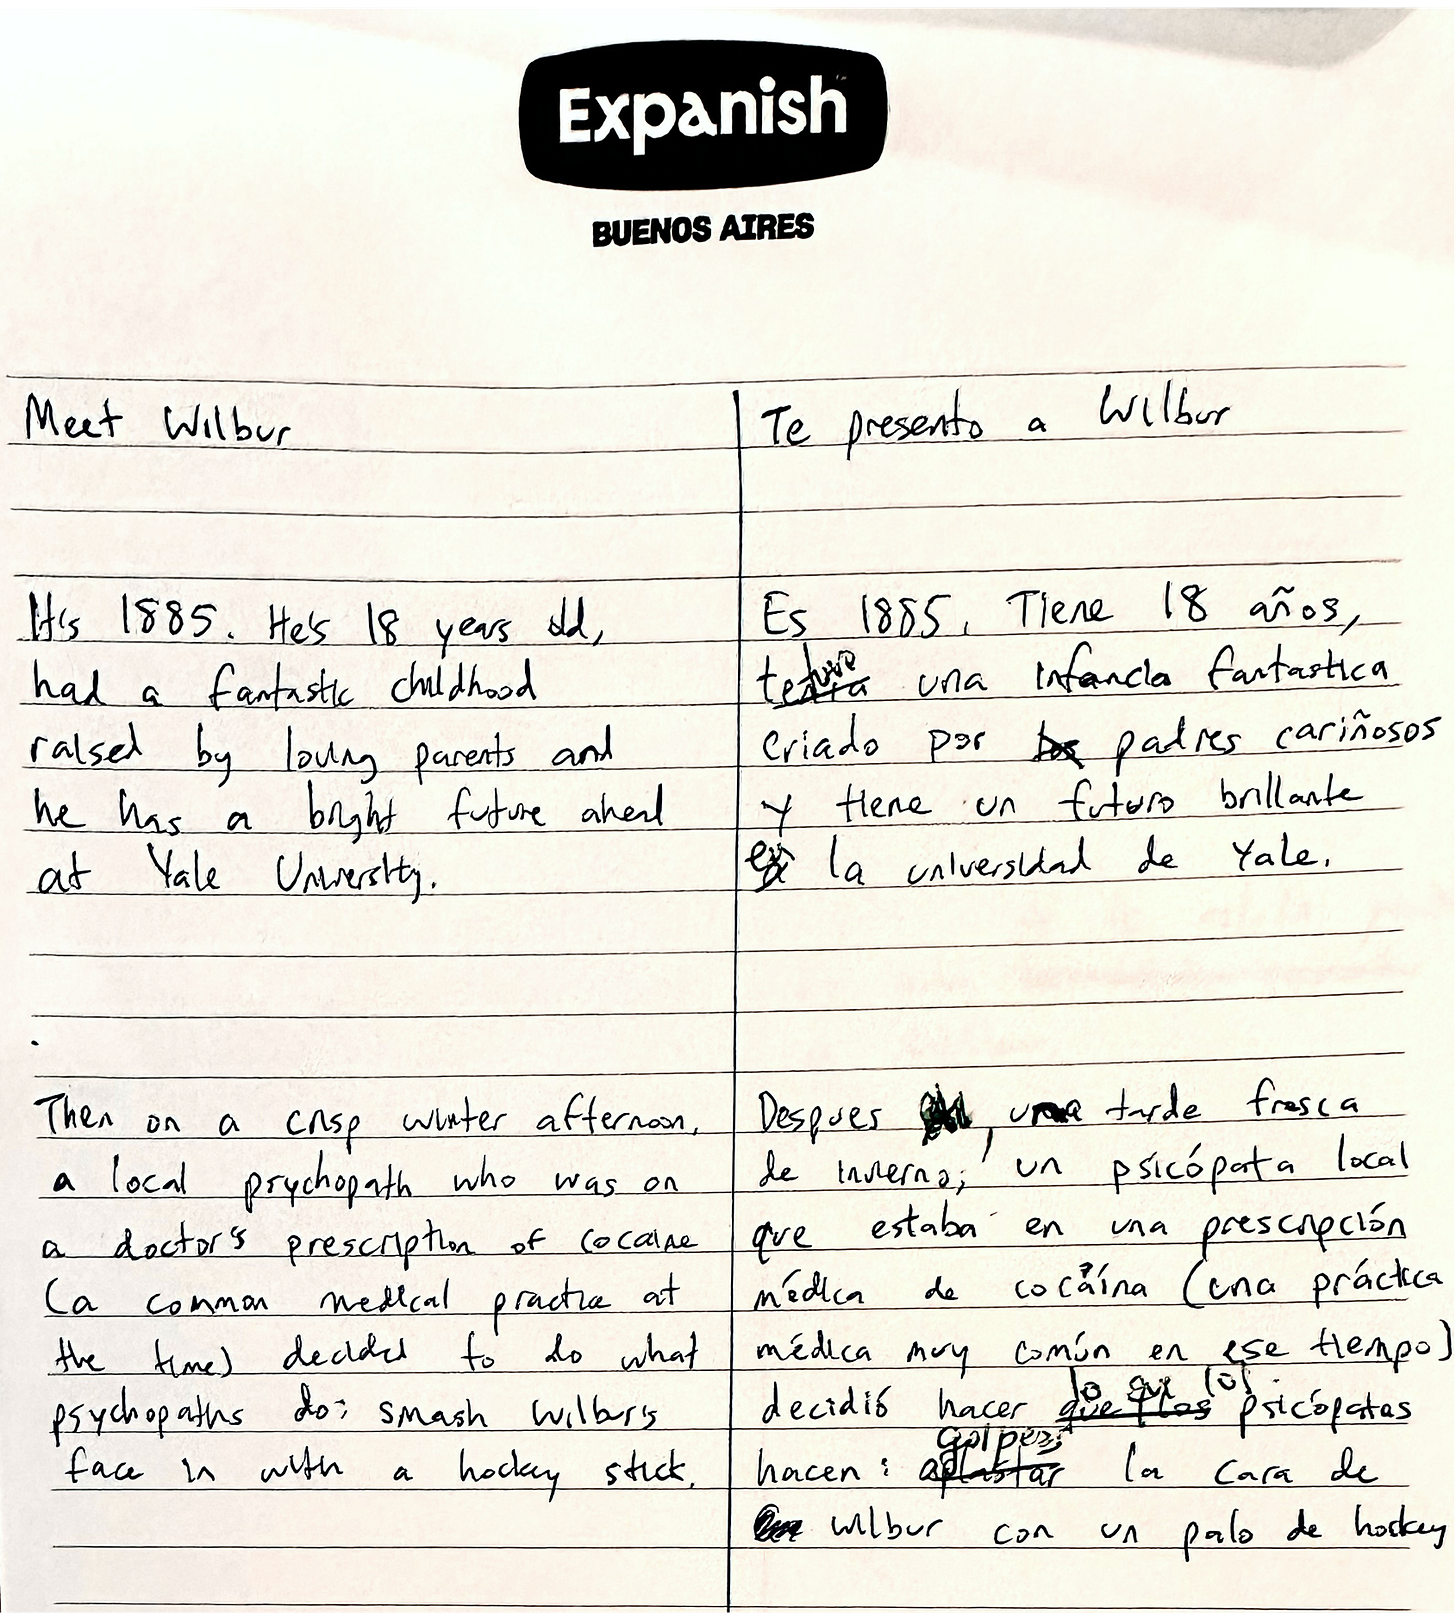 Expanish
BUENOS AIRES
Meet Wilbur
It's 1885. He's 18 years old,
had a fantastic childhood
raised by loving parents and
he has a bright future ahead
at Yale University.
Then on a crisp winter afternoon,
a local psychopath who was on
a doctor's prescription of cocaine
(a common medical practice at
the time) decided to do what
psychopaths do: smash Wilbur's
face in with a hockey stick.
Te presento a Wilbur
Es 1885. Tiene 18 años,
tuvo
tenía una infancia fantastica
criado por los padres cariñosos
y tiene un futuro brillante
en la universidad de Yale.
Despues , una tarde fresca
de invierno, un psicópata local
que estaba en una prescripción
médica de cocaína (una práctica
médica muy común en ese tiempo)
lo que los
decidió hacer que los psicópatas
golpear
hacen: aplastar la cara de
Wilbur con un palo de hockey